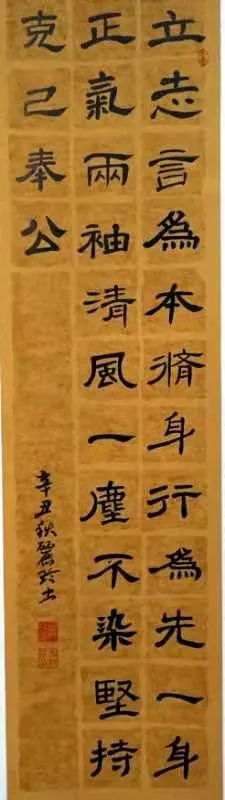 立志言為本脩身行為先一身
正氣兩袖清風一塵不染堅持
克己奉公
辛丑秋麗玲书